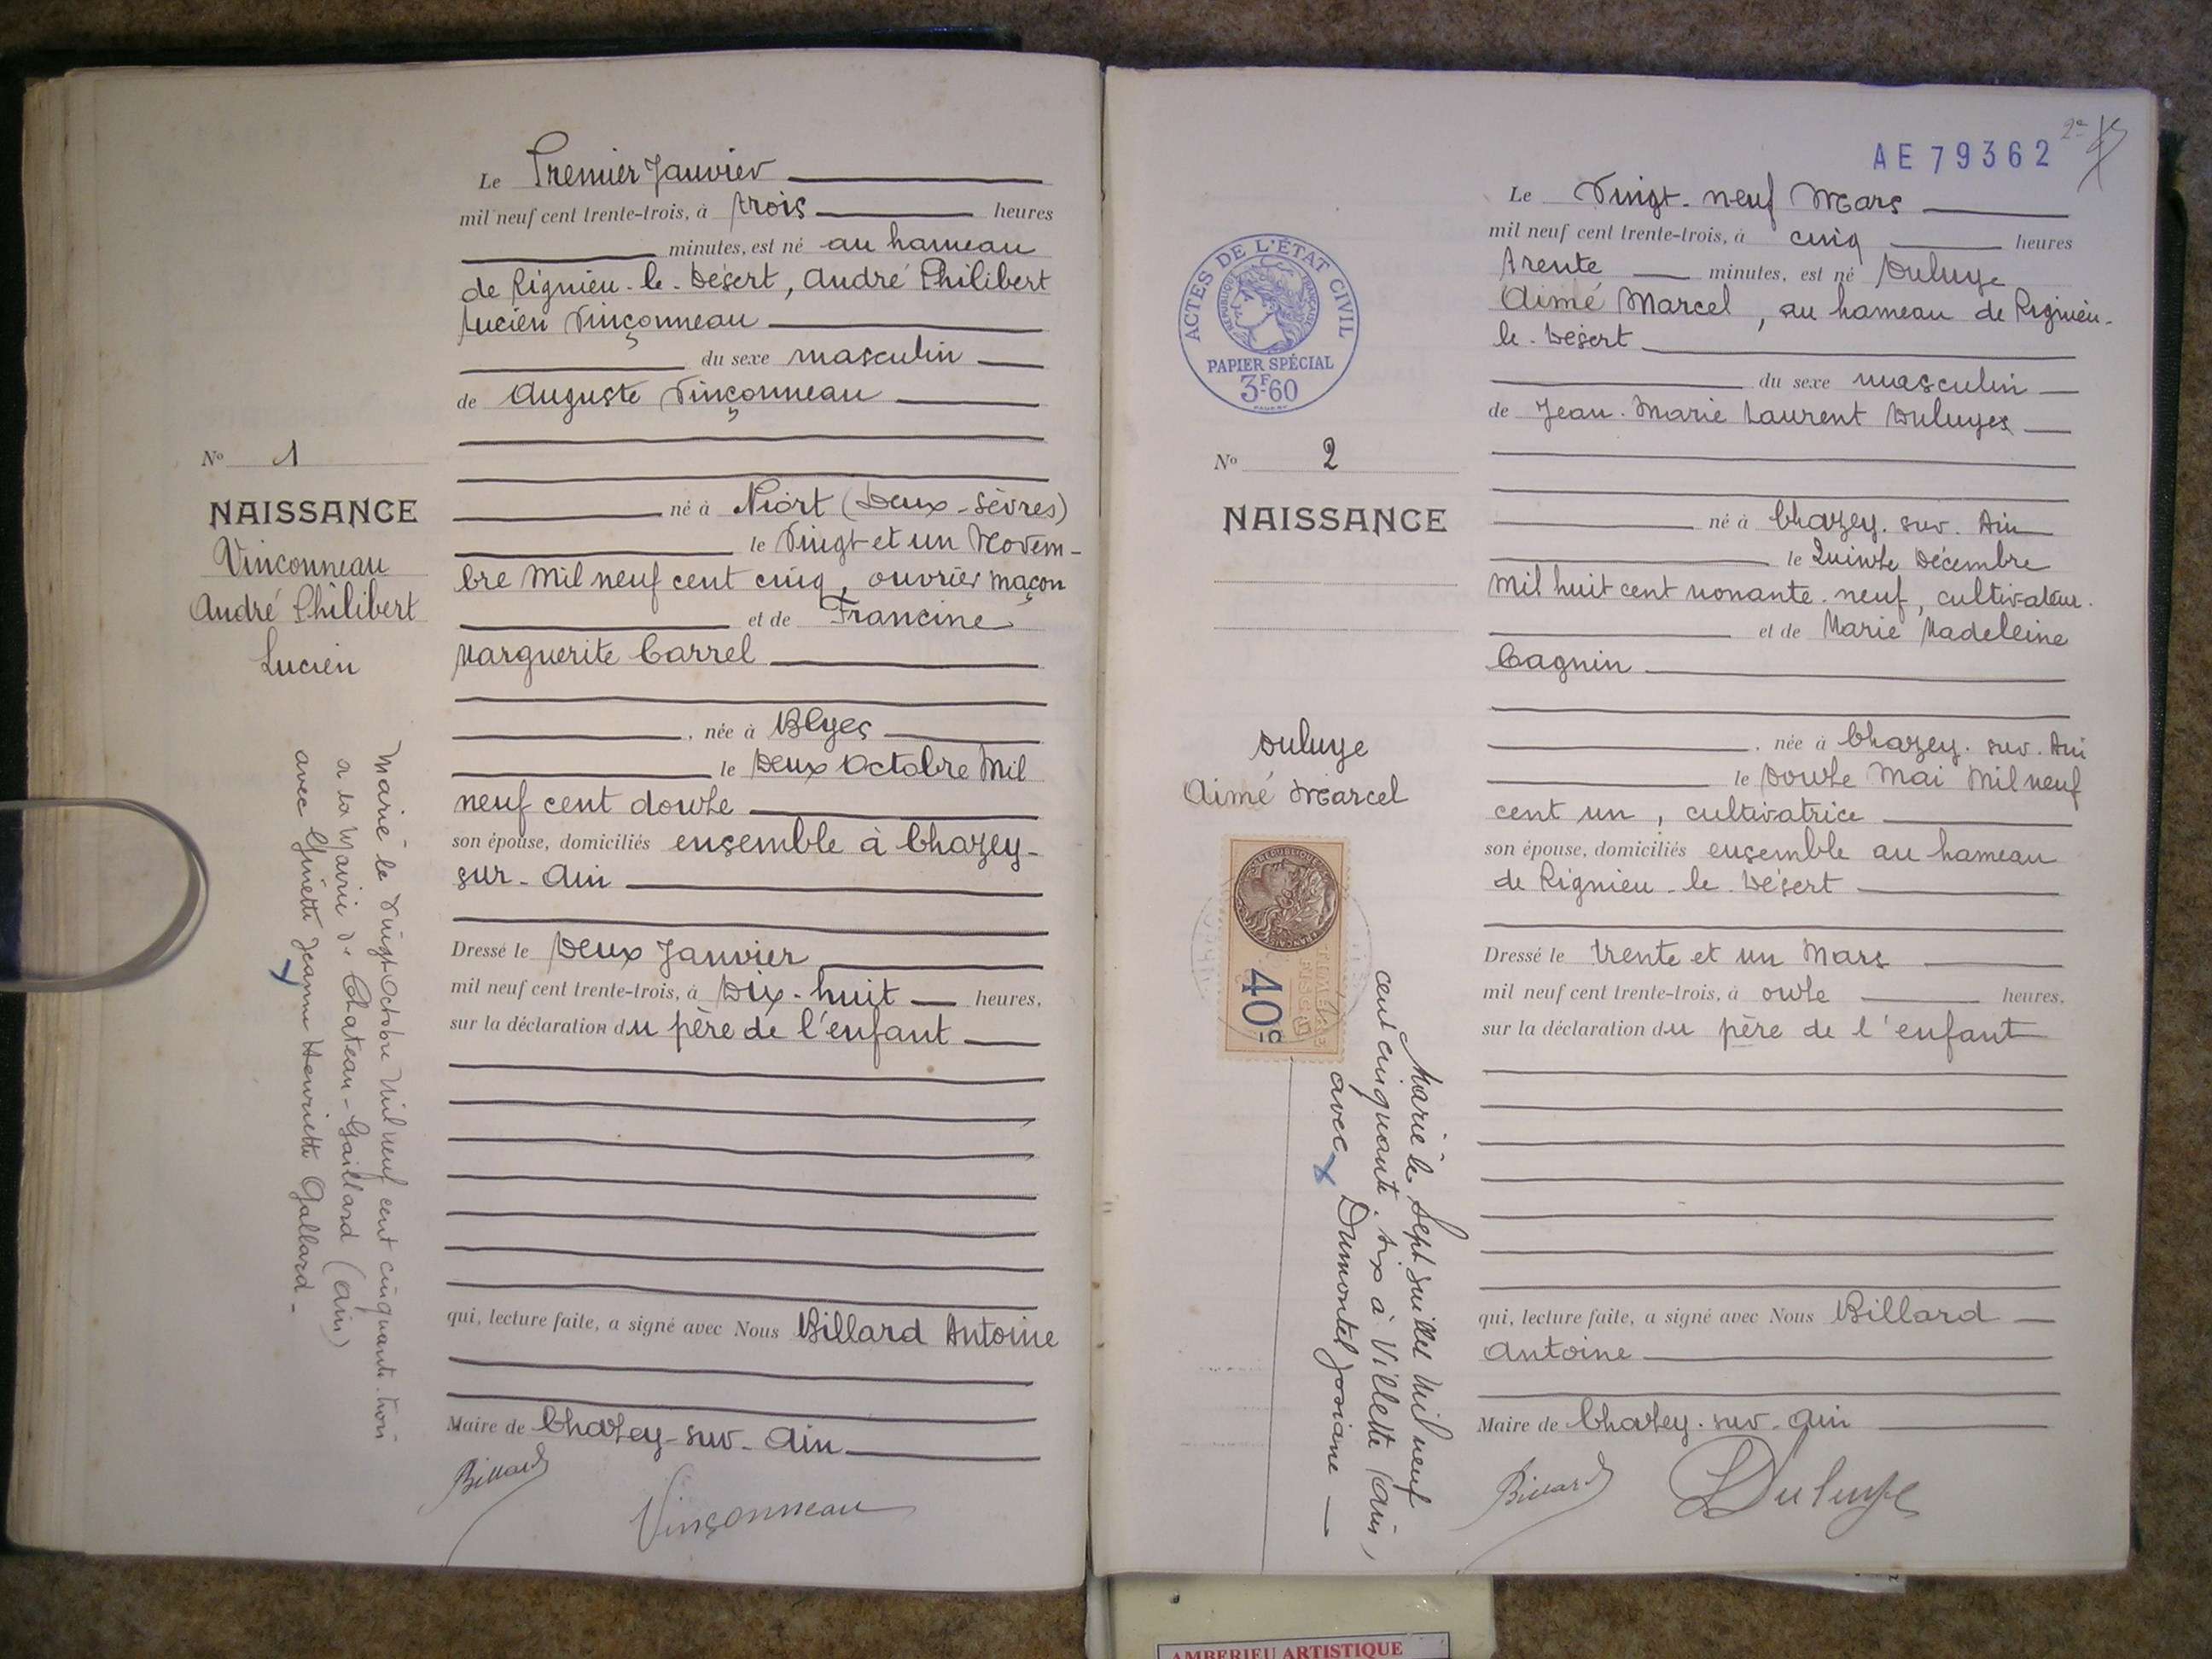 Le Premier Janvier
mil neuf cent trente-trois, à trois heures
minutes, est né au hameau
de Rignieu-le-Désert, André Philibert
Lucien Vinçonneau
du sexe masculin
de Auguste Vinçonneau
né à Niort (Deux-Sèvres)
le Vingt et un Novem-
bre Mil neuf cent cinq, ouvrier maçon
et de Francine
Marguerite Carrel
, née à Blyes
le Deux Octobre Mil
neuf cent douze
son épouse, domiciliés ensemble à Chazey-
sur-Ain
Dressé le Deux Janvier
mil neuf cent trente-trois, à Dix-huit heures,
sur la déclaration du père de l'enfant
qui, lecture faite, a signé avec Nous Billard Antoine
Maire de Chazey-sur-Ain
Billard
Vinçonneau
No 1
NAISSANCE
Vinconneau
André Philibert
Lucien
Marié le Vingt Octobre Mil neuf cent cinquante-trois
a la Mairie de Chateau-Gaillard (Ain)
avec Ginette Jeanne Henriette Gallard-
AE 79362
2e
Le Vingt-neuf Mars
mil neuf cent trente-trois, à cinq heures
trente minutes, est né Duluye
Aimé Marcel, au hameau de Rignieu-
le-Désert
du sexe masculin
de Jean-Marie Laurent Duluye
né à Chazey-sur-Ain
le Quinze Décembre
Mil huit cent nonante-neuf, cultivateur.
et de Marie Madeleine
Cagnin
, née à Chazey-sur-Ain
le Douze Mai Mil neuf
cent un, cultivatrice
son épouse, domiciliés ensemble au hameau
de Rignieu-le-Désert
Dressé le Trente et un Mars
mil neuf cent trente-trois, à onze heures,
sur la déclaration du père de l'enfant
qui, lecture faite, a signé avec Nous Billard
Antoine
Maire de Chazey-sur-Ain
Billard
Duluye
ACTES DE L'ÉTAT CIVIL
RÉPUBLIQUE FRANÇAISE
PAPIER SPÉCIAL
3F60
No 2
NAISSANCE
Duluye
Aimé Marcel
40c
Marié le Sept Juillet Mil neuf
cent cinquante-six à Villette (Ain)
avec Dumontel Josiane
AMBERIEU ARTISTIQUE